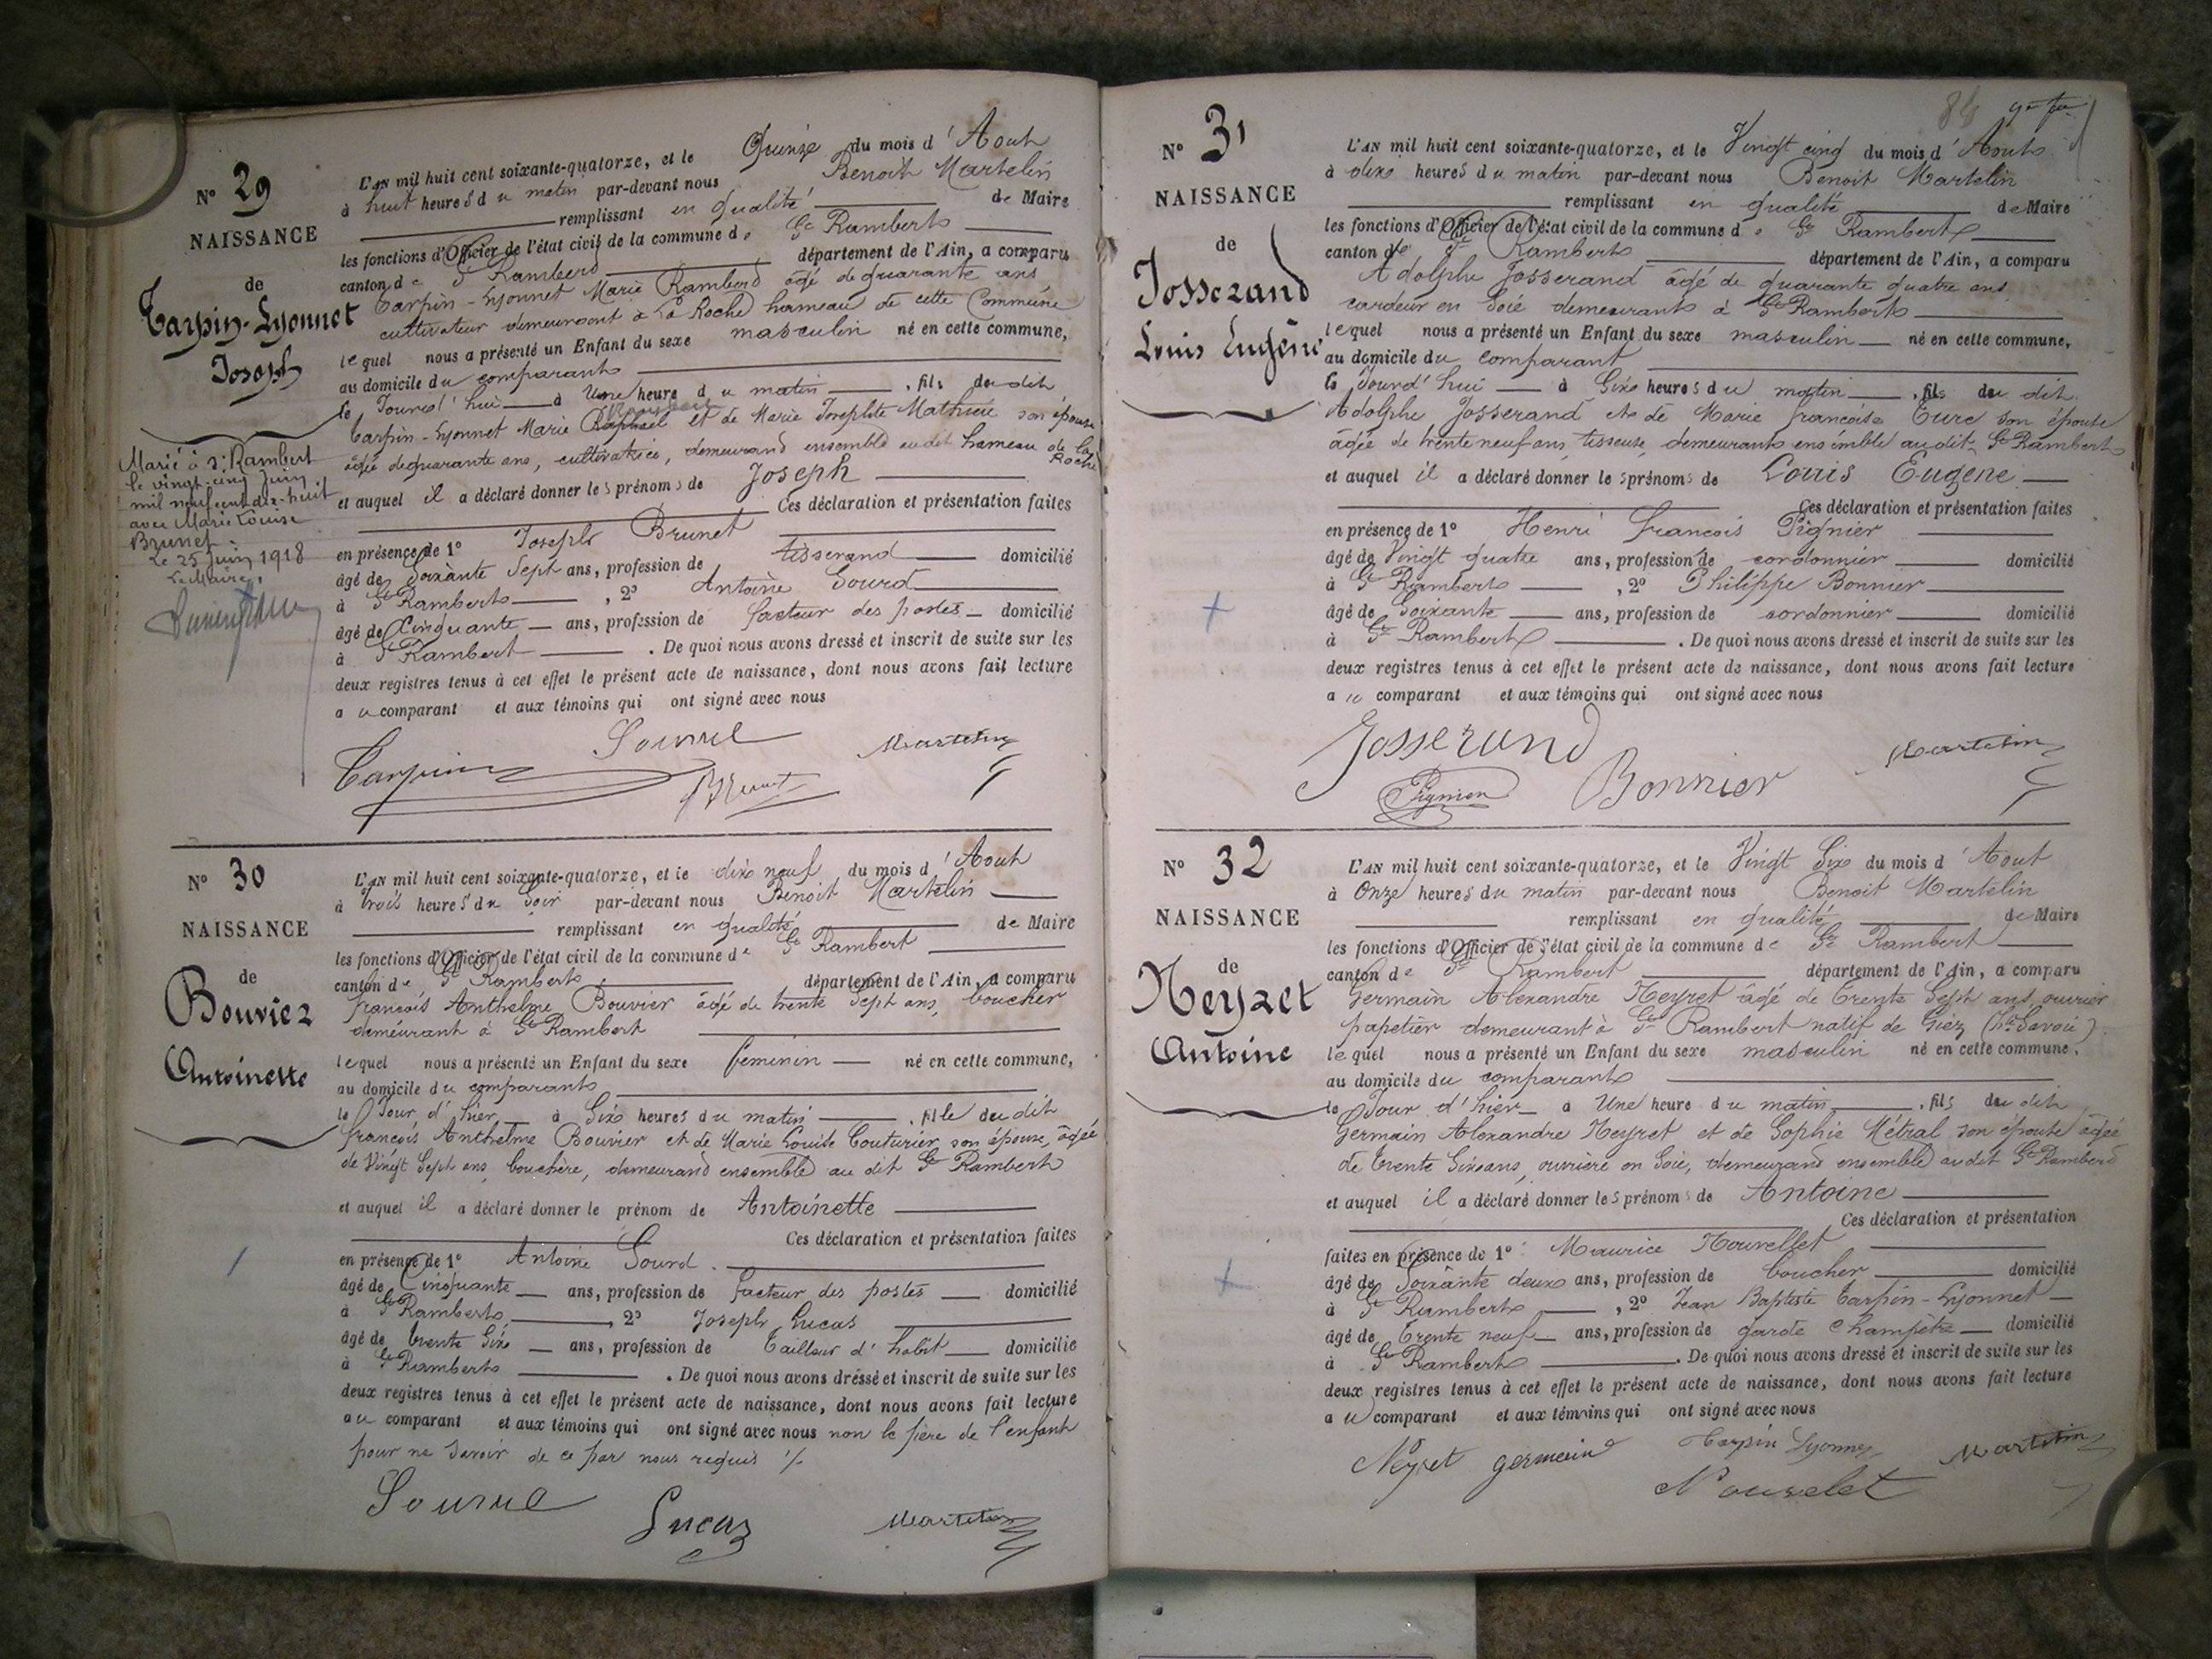 N° 29
NAISSANCE
de
Tarpin-Lyonnet
Joseph
Marié à St Rambert
le vingt-cinq Juin
mil neuf cent dix-huit
avec Marie Louise
Brunet.
Le 25 Juin 1918
Le Maire,
L'AN mil huit cent soixante-quatorze, et le Quinze du mois d'Aout
à huit heures du matin par-devant nous Benoit Martelin
remplissant en qualité de Maire
les fonctions d'Officier de l'état civil de la commune de St Rambert
canton de St Rambert département de l'Ain, a comparu
Tarpin-Lyonnet Marie Rambert âgé de quarante ans
cultivateur demeurant à La Roche hameau de cette Commune
lequel nous a présenté un Enfant du sexe masculin né en cette commune,
au domicile du comparant
le Jourd'hui à Une heure du matin, fils du dit
Tarpin-Lyonnet Marie et de Marie Josephte Mathieu son épouse
âgée de quarante ans, cultivatrice, demeurand ensemble audit hameau de la Roche
et auquel il a déclaré donner les prénoms de Joseph
Ces déclaration et présentation faites
en présence de 1° Joseph Brunet
âgé de Soixante Sept ans, profession de tisserand domicilié
à St Rambert, 2° Antoine Sourd
âgé de Cinquante ans, profession de facteur des postes domicilié
à St Rambert. De quoi nous avons dressé et inscrit de suite sur les
deux registres tenus à cet effet le présent acte de naissance, dont nous avons fait lecture
au comparant et aux témoins qui ont signé avec nous
Tarpin Sourd Martelin
Brunet
N° 30
NAISSANCE
de
Bouvier
Antoinette
L'AN mil huit cent soixante-quatorze, et le dix neuf du mois d'Aout
à trois heures du Soir par-devant nous Benoit Martelin
remplissant en qualité de Maire
les fonctions d'Officier de l'état civil de la commune de St Rambert
canton de St Rambert département de l'Ain, a comparu
françois Anthelme Bouvier âgé de trente Sept ans, boucher
demeurant à St Rambert
lequel nous a présenté un Enfant du sexe féminin né en cette commune,
au domicile du comparant
le Jour d'hier à Six heures du matin, fille du dit
françois Anthelme Bouvier et de Marie Louise Couturier son épouse, âgée
de Vingt Sept ans, bouchère, demeurand ensemble au dit St Rambert
et auquel il a déclaré donner le prénom de Antoinette
Ces déclaration et présentation faites
en présence de 1° Antoine Sourd
âgé de Cinquante ans, profession de facteur des postes domicilié
à St Rambert, 2° Joseph Lucas
âgé de trente Six ans, profession de Tailleur d'habit domicilié
à St Rambert. De quoi nous avons dressé et inscrit de suite sur les
deux registres tenus à cet effet le présent acte de naissance, dont nous avons fait lecture
au comparant et aux témoins qui ont signé avec nous non le père de l'enfant
pour ne savoir de ce par nous requis
Sourd Lucas Martelin
N° 31
NAISSANCE
de
Josserand
Louis Eugène
L'AN mil huit cent soixante-quatorze, et le Vingt cinq du mois d'Aout
à dix heures du matin par-devant nous Benoit Martelin
remplissant en qualité de Maire
les fonctions d'Officier de l'état civil de la commune de St Rambert
canton de St Rambert département de l'Ain, a comparu
Adolphe Josserand âgé de quarante quatre ans
cardeur en Soie demeurant à St Rambert
lequel nous a présenté un Enfant du sexe masculin né en cette commune,
au domicile du comparant
le Jourd'hui à Six heures du matin, fils du dit
Adolphe Josserand et de Marie françoise Turc son épouse
âgée de trente neuf ans, tisseuse, demeurant ensemble audit St Rambert
et auquel il a déclaré donner les prénoms de Louis Eugene
Ces déclaration et présentation faites
en présence de 1° Henri François Pignier
âgé de Vingt quatre ans, profession de cordonnier domicilié
à St Rambert, 2° Philippe Bonnier
âgé de Soixante ans, profession de cordonnier domicilié
à St Rambert. De quoi nous avons dressé et inscrit de suite sur les
deux registres tenus à cet effet le présent acte de naissance, dont nous avons fait lecture
au comparant et aux témoins qui ont signé avec nous
Josserand Martelin
Pignier Bonnier
N° 32
NAISSANCE
de
Neyret
Antoine
L'AN mil huit cent soixante-quatorze, et le Vingt Six du mois d'Aout
à Onze heures du matin par-devant nous Benoit Martelin
remplissant en qualité de Maire
les fonctions d'Officier de l'état civil de la commune de St Rambert
canton de St Rambert département de l'Ain, a comparu
Germain Alexandre Neyret âgé de Trente Sept ans, ouvrier
papetier demeurant à St Rambert natif de Giez (Hte Savoie)
lequel nous a présenté un Enfant du sexe masculin né en cette commune,
au domicile du comparant
le Jour d'hier à Une heure du matin, fils du dit
Germain Alexandre Neyret et de Sophie Métral son épouse âgée
de trente Six ans, ouvrière en Soie, demeurand ensemble audit St Rambert
et auquel il a déclaré donner les prénoms de Antoine
Ces déclaration et présentation
faites en présence de 1° Maurice Nouvellet
âgé de Soixante deux ans, profession de boucher domicilié
à St Rambert, 2° Jean Baptiste Tarpin-Lyonnet
âgé de Trente neuf ans, profession de garde Champêtre domicilié
à St Rambert. De quoi nous avons dressé et inscrit de suite sur les
deux registres tenus à cet effet le présent acte de naissance, dont nous avons fait lecture
au comparant et aux témoins qui ont signé avec nous
Neyret germain Tarpin Lyonnet Martelin
Nouvelet